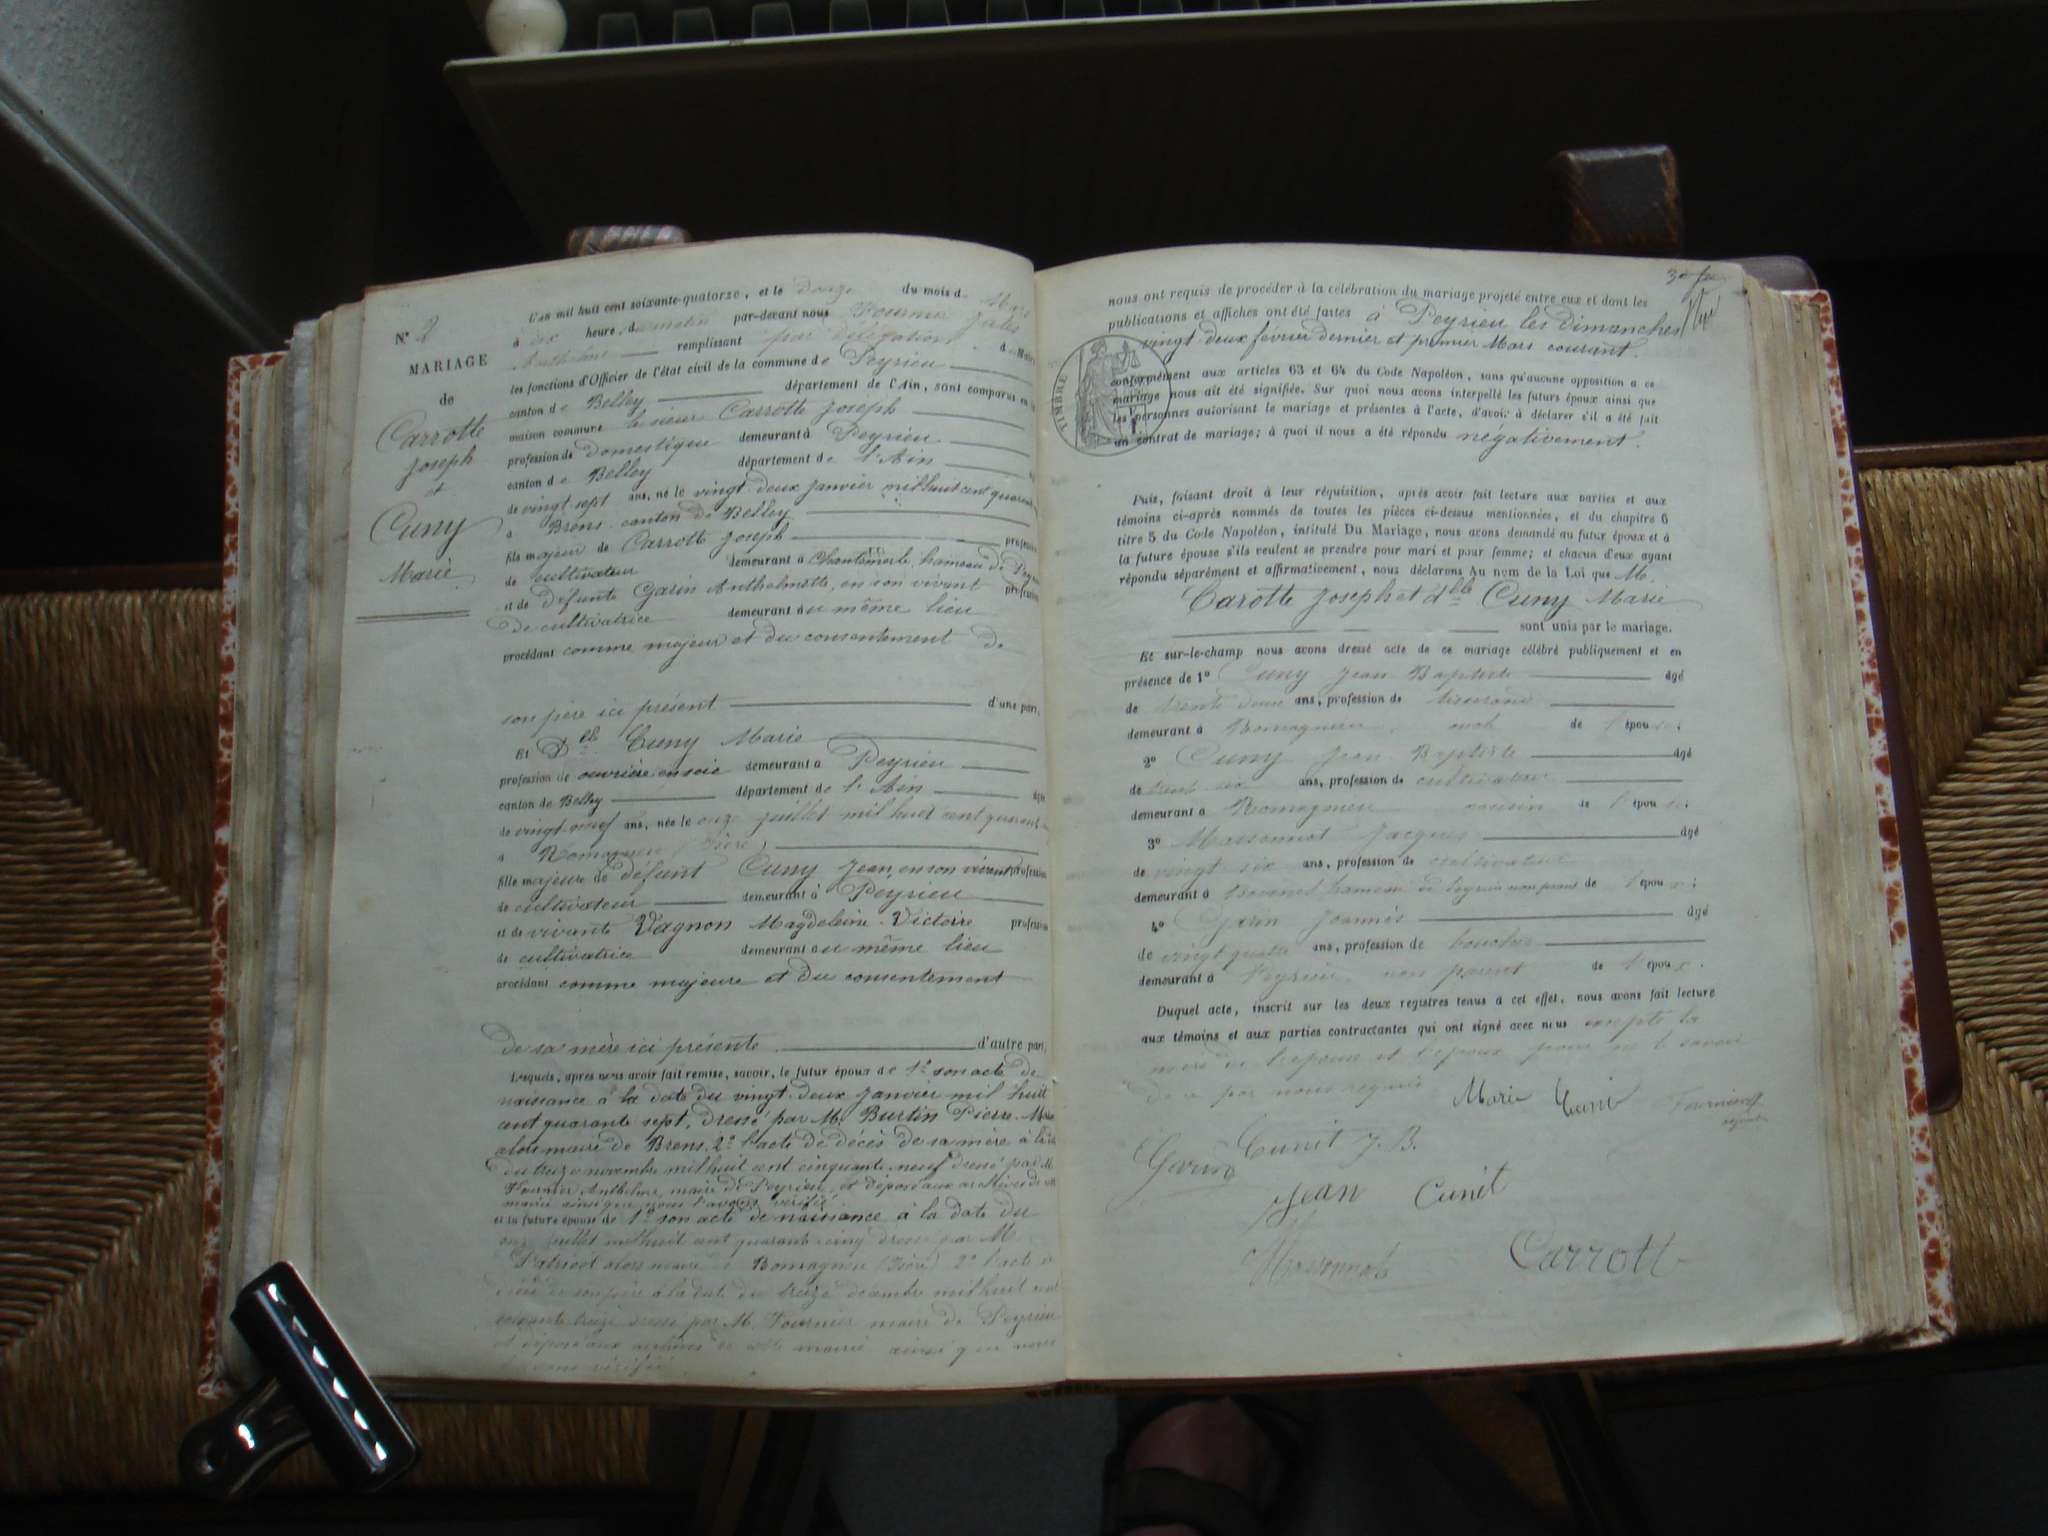 N° 2
MARIAGE
de
Carrotte
Joseph
et
Cuny
Marie
L'an mil huit cent soixante-quatorze, et le douze du mois de Mars
à dix heure, du matin par-devant nous Fournier Jules
Anthelme remplissant par délégation
les fonctions d'Officier de l'état civil de la commune de Peyrieu
canton de Belley département de l'Ain, sont comparus en la
maison commune le sieur Carrotte Joseph
profession de domestique demeurant à Peyrieu
canton de Belley département de l'Ain
de vingt sept ans, né le vingt-deux Janvier mil huit cent quarante
à Brens canton de Belley
fils majeur de Carrotte Joseph profession
de cultivateur demeurant à Chantemerle, hameau de Peyrieu
et de défunte Garin Anthelmette, en son vivant profession
de cultivatrice demeurant au même lieu
procédant comme majeur et du consentement de
son père ici présent d'une part,
Et Dlle Cuny Marie
profession de ouvrière en soie demeurant à Peyrieu
canton de Belley département de l'Ain âgée
de vingt-neuf ans, née le onze juillet mil huit cent quarante
à Romagnieu (Isère)
fille majeure de défunt Cuny Jean, en son vivant profession
de cultivateur demeurant à Peyrieu
et de vivante Vagnon Magdeleine Victoire profession
de cultivatrice demeurant au même lieu
procédant comme majeure et du consentement
de sa mère ici présente d'autre part,
Lesquels, après nous avoir fait remise, savoir, le futur époux de 1° son acte de
naissance à la date du vingt-deux Janvier mil huit
cent quarante sept, dressé par M. Burtin Pierre
alors maire de Brens. 2° l'acte de décès de sa mère à la date
du treize novembre mil huit cent cinquante neuf dressé par M.
Fournier Anthelme, maire de Peyrieu, et déposé aux archives de cette
mairie ainsi que nous l'avons vérifié
et la future épouse de 1° son acte de naissance à la date du
onze juillet mil huit cent quarante-cinq dressé par M.
Patricot alors maire de Romagnieu (Isère) 2° l'acte de
décès de son père à la date du treize décembre mil huit cent
soixante treize dressé par M. Fournier maire de Peyrieu
et déposé aux archives de cette mairie ainsi que nous
l'avons vérifié
nous ont requis de procéder à la célébration du mariage projeté entre eux et dont les
publications et affiches ont été faites à Peyrieu les dimanches
vingt deux février dernier et premier Mars courant.
TIMBRE
conformément aux articles 63 et 64 du Code Napoléon, sans qu'aucune opposition a ce
mariage nous ait été signifiée. Sur quoi nous avons interpellé les futurs époux ainsi que
les personnes autorisant le mariage et présentes à l'acte, d'avoir à déclarer s'il a été fait
un contrat de mariage; à quoi il nous a été répondu négativement.
Puis, faisant droit à leur réquisition, après avoir fait lecture aux parties et aux
témoins ci-après nommés de toutes les pièces ci-dessus mentionnées, et du chapitre 6
titre 5 du Code Napoléon, intitulé Du Mariage, nous avons demandé au futur époux et à
la future épouse s'ils veulent se prendre pour mari et pour femme; et chacun d'eux ayant
répondu séparément et affirmativement, nous déclarons Au nom de la Loi que M.
Carotte Joseph et dlle Cuny Marie
sont unis par le mariage.
Et sur-le-champ nous avons dressé acte de ce mariage célébré publiquement et en
présence de 1° Cuny Jean Baptiste âgé
de trente deux ans, profession de tisserand
demeurant à Romagnieu de l'épouse;
2° Cuny Jean Baptiste âgé
de trente six ans, profession de cultivateur
demeurant à Romagnieu cousin de l'épouse;
3° Massonnot Jacques âgé
de vingt six ans, profession de cultivateur
demeurant à hameau de Peyrieu non parent de l'époux;
4° Garin Joannès âgé
de vingt quatre ans, profession de boucher
demeurant à Peyrieu non parent de l'époux.
Duquel acte, inscrit sur les deux registres tenus à cet effet, nous avons fait lecture
aux témoins et aux parties contractantes qui ont signé avec nous excepté la
mère de l'épouse et l'époux pour ne le savoir
de ce par nous requis
Marie Cunit Fournier
Cunit J. B.
Garin
Jean Cunit
Massonnot
Carrott